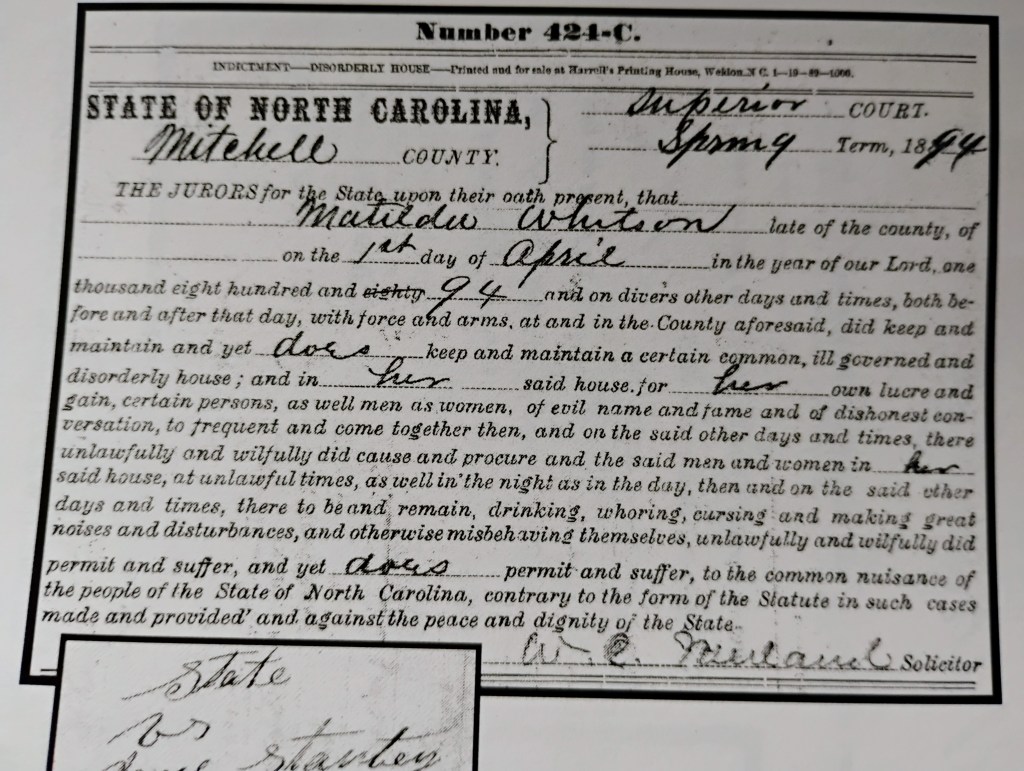 Number 424-C.
INDICTMENT—DISORDERLY HOUSE—Printed and for sale at Harrell's Printing House, Weldon, N C. 1—10—89—1000.
STATE OF NORTH CAROLINA, } Superior COURT.
Mitchell COUNTY. Spring Term, 1894
THE JURORS for the State upon their oath present, that
Matilda Whitson late of the county, of
on the 1st day of April in the year of our Lord, one
thousand eight hundred and eighty 94 and on divers other days and times, both be-
fore and after that day, with force and arms, at and in the County aforesaid, did keep and
maintain and yet does keep and maintain a certain common, ill governed and
disorderly house; and in her said house, for her own lucre and
gain, certain persons, as well men as women, of evil name and fame and of dishonest con-
versation, to frequent and come together then, and on the said other days and times, there
unlawfully and wilfully did cause and procure and the said men and women in her
said house, at unlawful times, as well in the night as in the day, then and on the said other
days and times, there to be and remain, drinking, whoring, cursing and making great
noises and disturbances, and otherwise misbehaving themselves, unlawfully and wilfully did
permit and suffer, and yet does permit and suffer, to the common nuisance of
the people of the State of North Carolina, contrary to the form of the Statute in such cases
made and provided and against the peace and dignity of the State.
W. C. Solicitor
State
vs